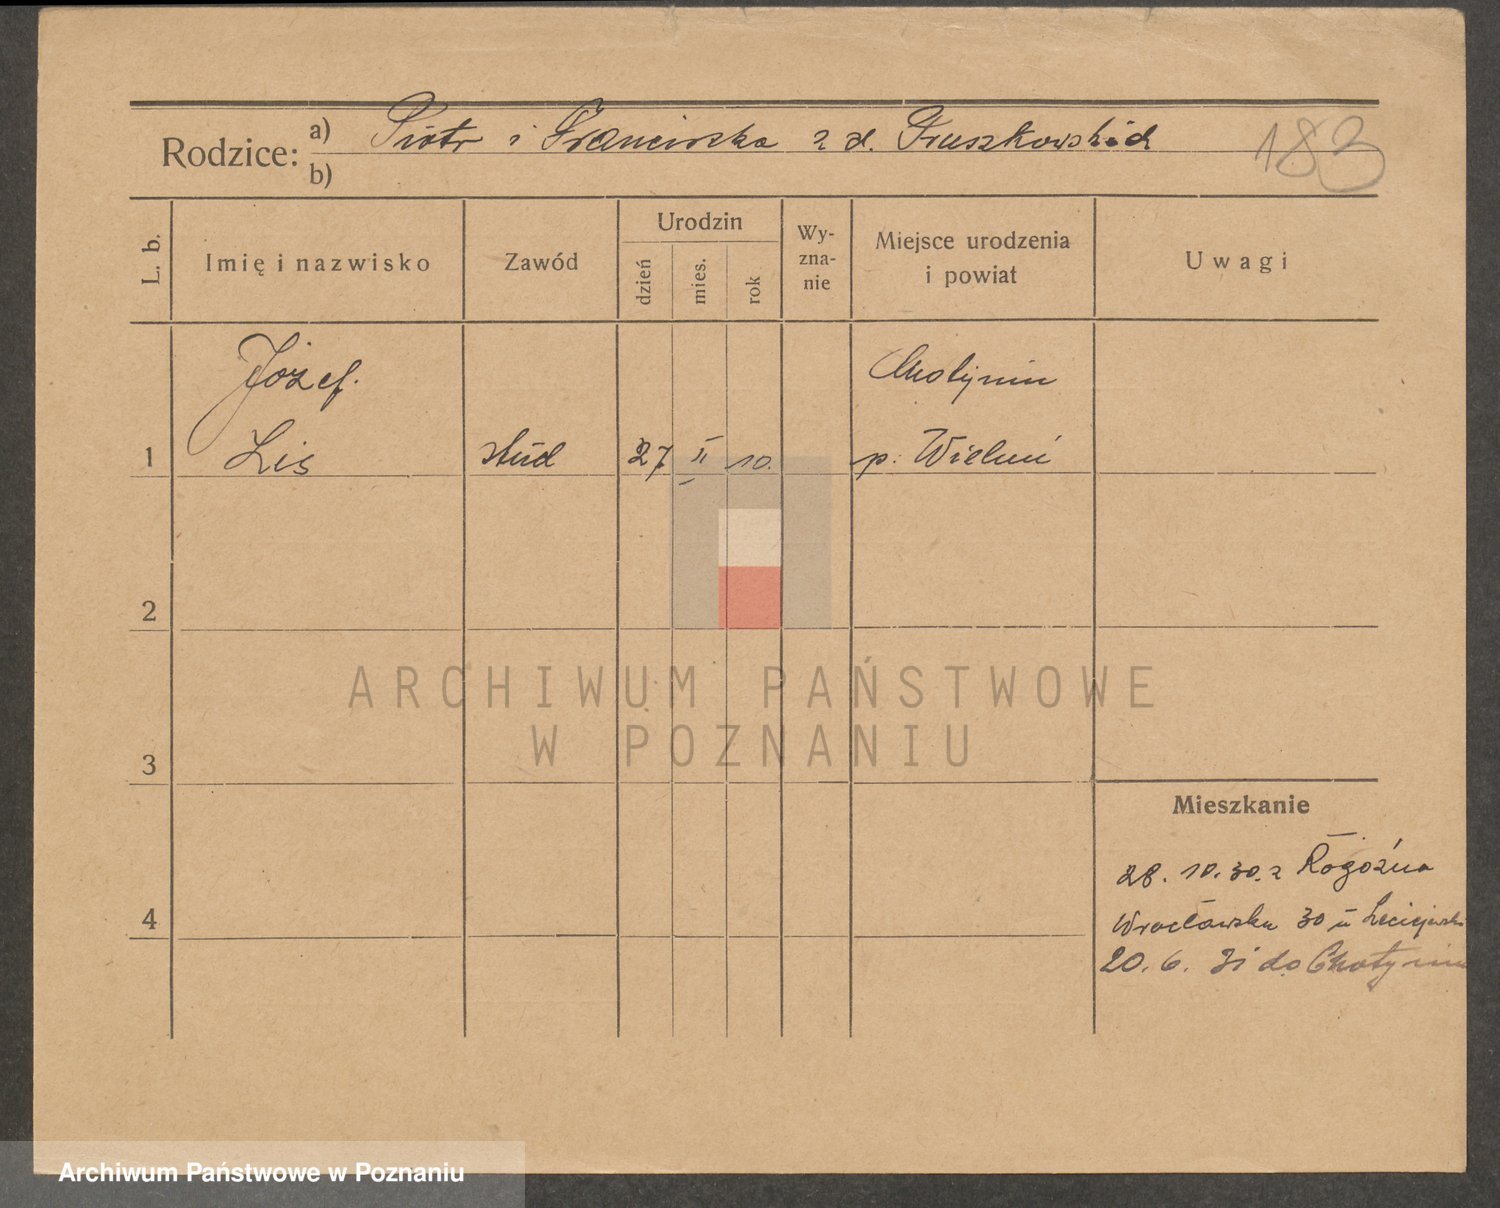 Rodzice: a) Piotr i Franciszka z d. Truszkowskich
b)
183
L. b.
Imię i nazwisko
Zawód
Urodzin
dzień
mies.
rok
Wy-
zna-
nie
Miejsce urodzenia
i powiat
Uwagi
Józef
Chotynin
1 Lis stud 27 II 10. p. Wieluń
2
ARCHIWUM PAŃSTWOWE
W POZNANIU
3
Mieszkanie
28. 10. 30. z Rogoźna
4
Wrocławska 30 u
20. 6. 31 do Chotynin
Archiwum Państwowe w Poznaniu